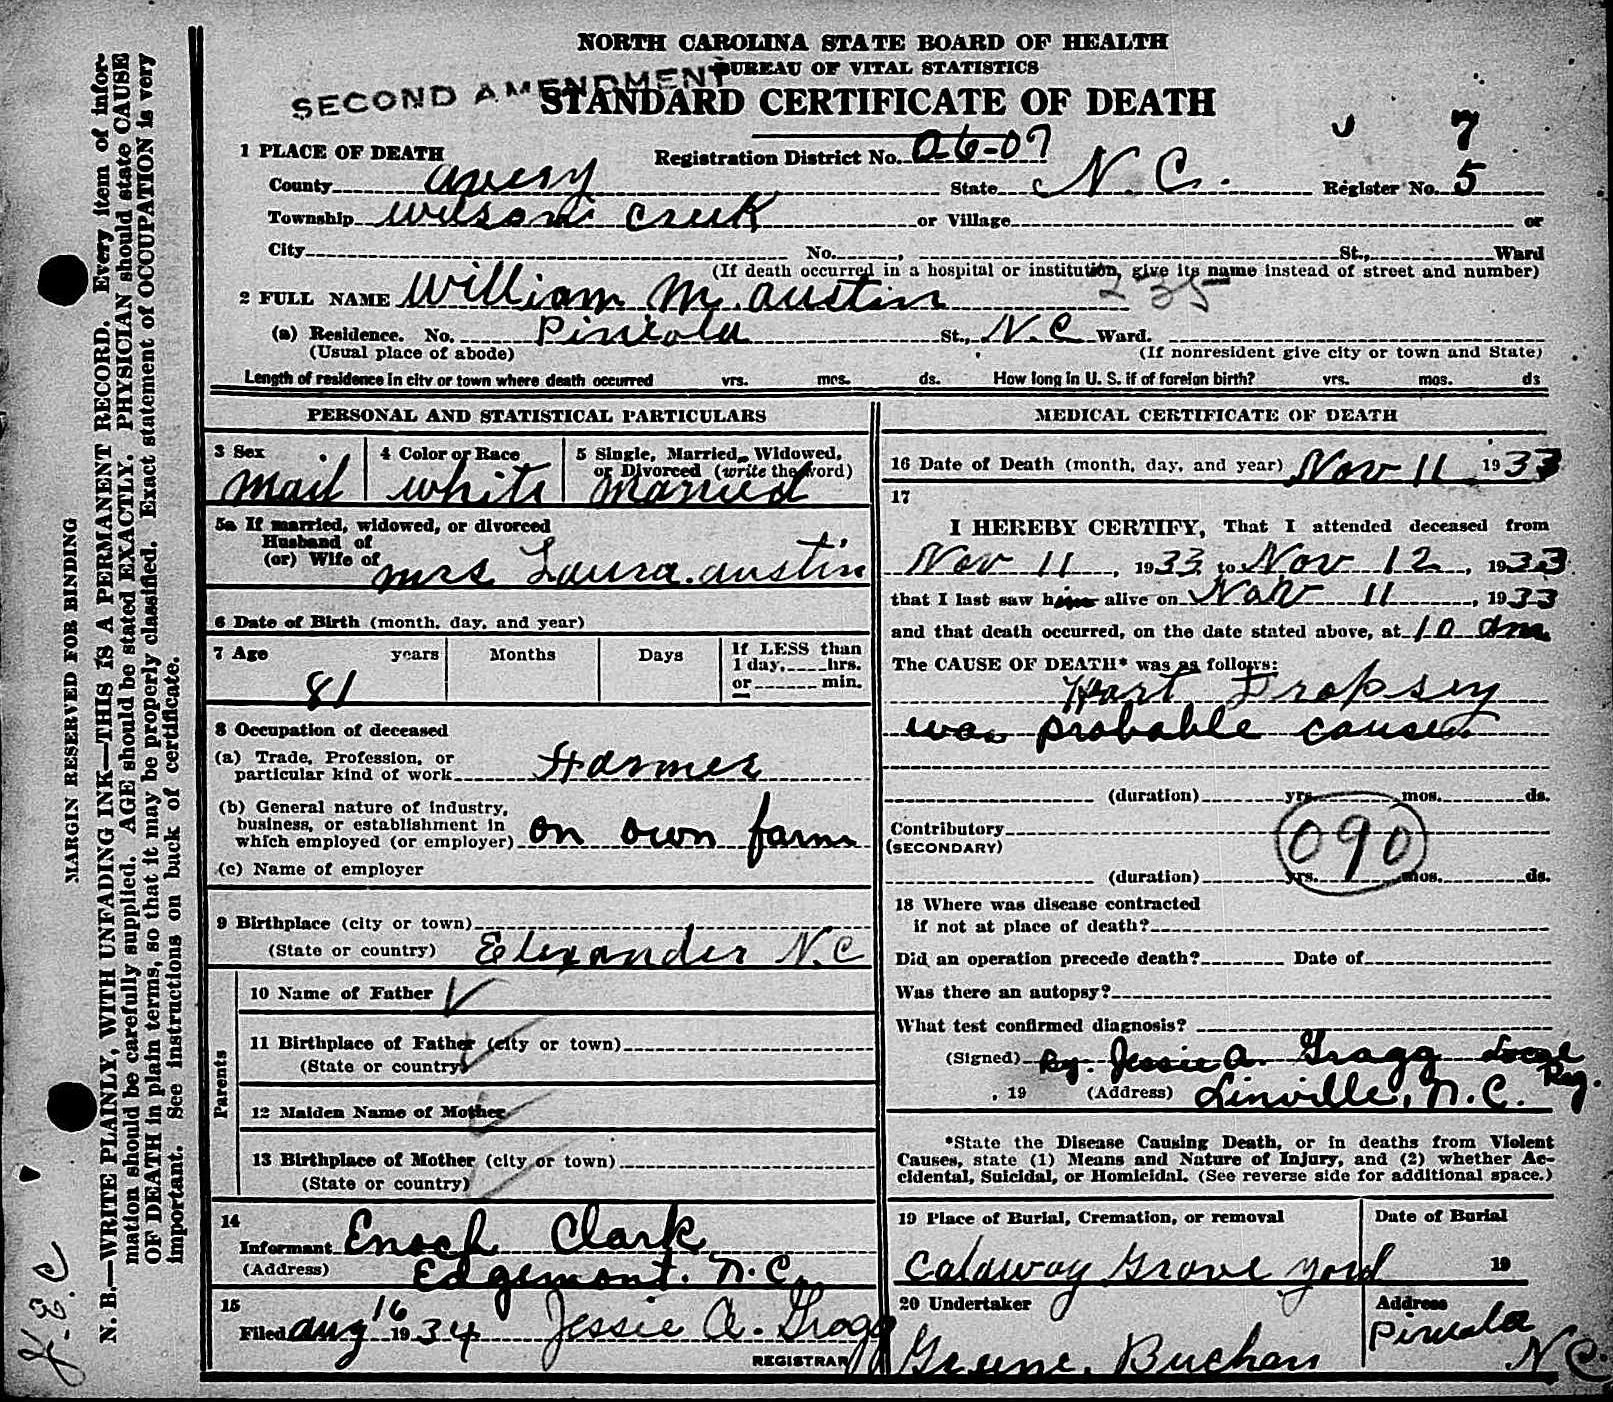 NORTH CAROLINA STATE BOARD OF HEALTH
BUREAU OF VITAL STATISTICS
SECOND AMENDMENT
STANDARD CERTIFICATE OF DEATH
7
1 PLACE OF DEATH
Registration District No. 06-07
County Avery State N. C. Register No. 5
Township Wilson Creek or Village or
City No. , St., Ward
(If death occurred in a hospital or institution, give its name instead of street and number)
2 FULL NAME William M. Austin
235
(a) Residence. No. Pineola St., N.C Ward.
(Usual place of abode) (If nonresident give city or town and State)
Length of residence in city or town where death occurred yrs. mos. ds. How long in U. S. if of foreign birth? yrs. mos. ds
PERSONAL AND STATISTICAL PARTICULARS
3 Sex 4 Color or Race 5 Single, Married, Widowed,
or Divorced (write the word)
Mail White Married
5a If married, widowed, or divorced
Husband of
(or) Wife of Mrs Laura Austin
6 Date of Birth (month, day, and year)
7 Age years Months Days If LESS than
1 day, hrs.
or min.
81
8 Occupation of deceased
(a) Trade, Profession, or
particular kind of work Farmer
(b) General nature of industry,
business, or establishment in
which employed (or employer) on own farm
(c) Name of employer
9 Birthplace (city or town)
(State or country) Elexander N.C
Parents
10 Name of Father
11 Birthplace of Father (city or town)
(State or country)
12 Maiden Name of Mother
13 Birthplace of Mother (city or town)
(State or country)
14
Informant Enoch Clark
(Address) Edgemont. N.C.
15
Filed Aug 16 1934 Jessie A. Gragg
REGISTRAR
MEDICAL CERTIFICATE OF DEATH
16 Date of Death (month, day, and year) Nov 11, 1933
17
I HEREBY CERTIFY, That I attended deceased from
Nov 11, 1933 to Nov 12, 1933
that I last saw him alive on Nov 11, 1933
and that death occurred, on the date stated above, at 10 am.
The CAUSE OF DEATH* was as follows:
Hart Dropsey
was probable cause.
(duration) yrs. mos. ds.
Contributory
(SECONDARY)
090
(duration) yrs. mos. ds.
18 Where was disease contracted
if not at place of death?
Did an operation precede death? Date of
Was there an autopsy?
What test confirmed diagnosis?
(Signed) By. Jessie A. Gragg Local Reg.
, 19 (Address) Linville, N.C.
*State the Disease Causing Death, or in deaths from Violent
Causes, state (1) Means and Nature of Injury, and (2) whether Ac-
cidental, Suicidal, or Homicidal. (See reverse side for additional space.)
19 Place of Burial, Cremation, or removal Date of Burial
Calaway Grave yord 19
20 Undertaker Address
Greene. Buchan Pineola
N C.
MARGIN RESERVED FOR BINDING
N. B.—WRITE PLAINLY, WITH UNFADING INK—THIS IS A PERMANENT RECORD. Every item of infor-
mation should be carefully supplied. AGE should be stated EXACTLY. PHYSICIAN should state CAUSE
OF DEATH in plain terms, so that it may be properly classified. Exact statement of OCCUPATION is very
important. See instructions on back of certificate.